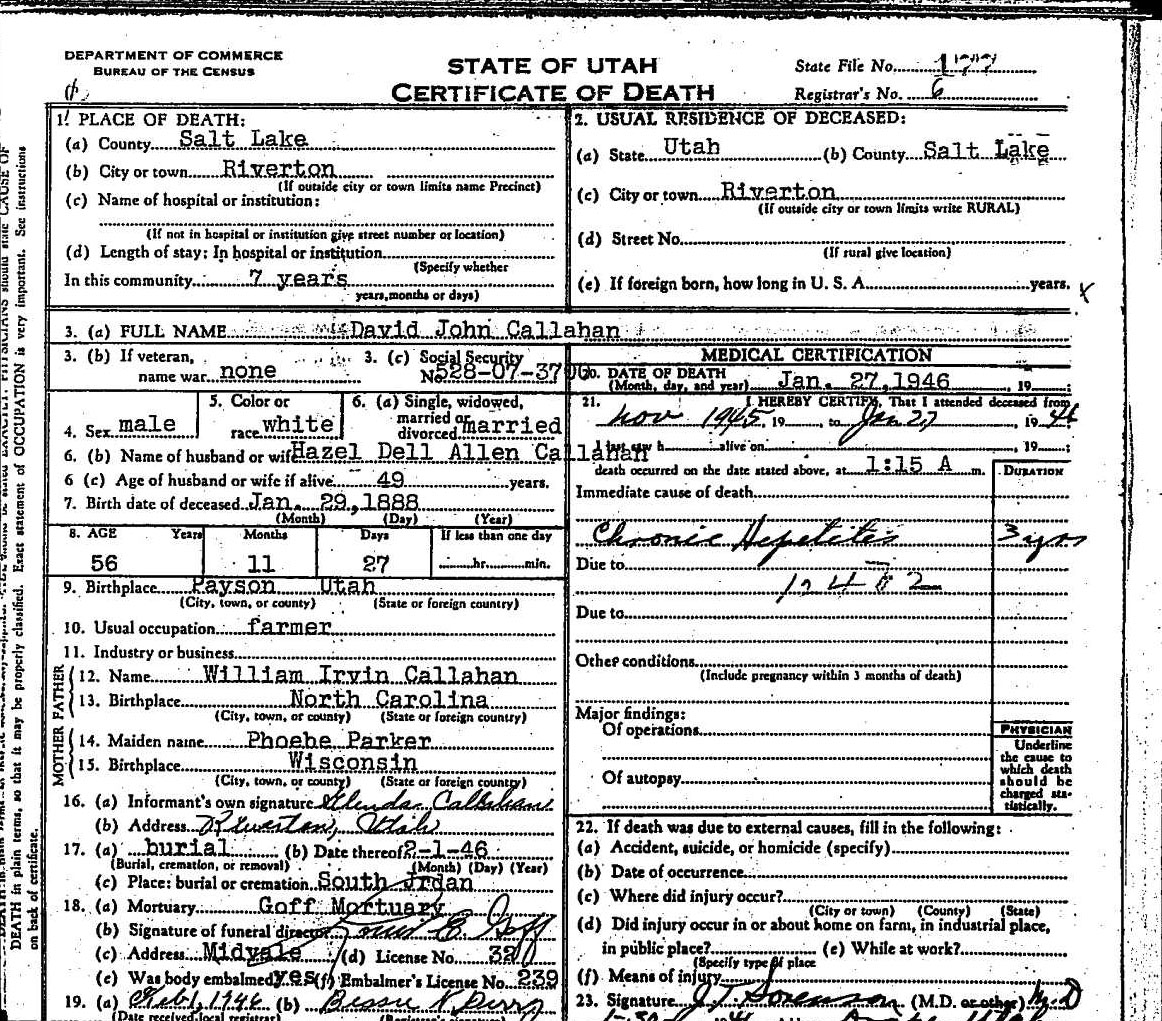 DEPARTMENT OF COMMERCE
BUREAU OF THE CENSUS
STATE OF UTAH
CERTIFICATE OF DEATH
State File No. 177
Registrar's No. 6
1. PLACE OF DEATH:
(a) County Salt Lake
(b) City or town Riverton
(If outside city or town limits name Precinct)
(c) Name of hospital or institution:
(If not in hospital or institution give street number or location)
(d) Length of stay: In hospital or institution
(Specify whether
In this community 7 years
years, months or days)
2. USUAL RESIDENCE OF DECEASED:
(a) State Utah (b) County Salt Lake
(c) City or town Riverton
(If outside city or town limits write RURAL)
(d) Street No.
(If rural give location)
(e) If foreign born, how long in U. S. A. years.
3. (a) FULL NAME David John Callahan
3. (b) If veteran, name war none
3. (c) Social Security No. 528-07-3700
4. Sex male
5. Color or race white
6. (a) Single, widowed, married or divorced married
6. (b) Name of husband or wife Hazel Dell Allen Callahan
6 (c) Age of husband or wife if alive 49 years.
7. Birth date of deceased Jan. 29, 1888
(Month) (Day) (Year)
8. AGE Years Months Days If less than one day
56 11 27 hr. min.
9. Birthplace Payson Utah
(City, town, or county) (State or foreign country)
10. Usual occupation farmer
11. Industry or business
FATHER
12. Name William Irvin Callahan
13. Birthplace North Carolina
(City, town, or county) (State or foreign country)
MOTHER
14. Maiden name Phoebe Parker
15. Birthplace Wisconsin
(City, town, or county) (State or foreign country)
16. (a) Informant's own signature Glenda Callahan
(b) Address Riverton, Utah
17. (a) burial (b) Date thereof 2-1-46
(Burial, cremation, or removal) (Month) (Day) (Year)
(c) Place: burial or cremation South Jrdan
18. (a) Mortuary Goff Mortuary
(b) Signature of funeral director Louis E. Goff
(c) Address Midvale (d) License No. 320
(e) Was body embalmed yes (f) Embalmer's License No. 239
19. (a) Feb 1, 1946 (b) Bessie N Perry
(Date received local registrar)
MEDICAL CERTIFICATION
20. DATE OF DEATH
(Month, day, and year) Jan. 27, 1946, 19
21. I HEREBY CERTIFY, That I attended deceased from
Nov 1945, 19 , to Jan 27, 1946
I last saw h alive on , 19 ;
death occurred on the date stated above, at 1:15 A m.
DURATION
Immediate cause of death
Chronic Hepetites 3 yrs
Due to
Due to
Other conditions
(Include pregnancy within 3 months of death)
Major findings:
Of operations
Of autopsy
PHYSICIAN
Underline
the cause to
which death
should be
charged sta-
tistically.
22. If death was due to external causes, fill in the following:
(a) Accident, suicide, or homicide (specify)
(b) Date of occurrence
(c) Where did injury occur?
(City or town) (County) (State)
(d) Did injury occur in or about home on farm, in industrial place,
in public place? (e) While at work?
(Specify type of place
(f) Means of injury
23. Signature Sorenson (M.D. or other) M.D
DEATH in plain terms, so that it may be properly classified. Exact statement of OCCUPATION is very important. See instructions
on back of certificate.